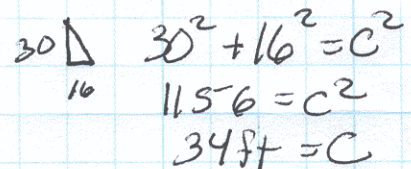 30
16
30² + 16² = C²
1156 = C²
34 ft = C